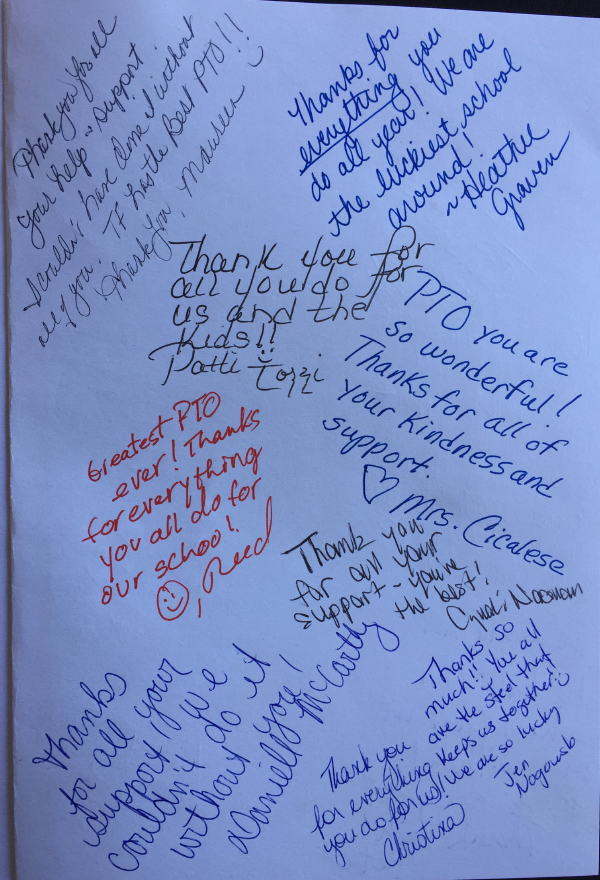 Thank you for all
your help & support.
I wouldn't have done it without
all of you. TF has the Best PTO!!
Thank you, Maureen
Thanks for
everything you
do all year! We are
the luckiest school
around!
~ Heather
Graven
Thank you for
all you do for
us and the
kids!!
Patti Tozzi
PTO you are
so wonderful!
Thanks for all of
your kindness and
support.
♡ Mrs. Cicalese
Greatest PTO
ever! Thanks
for everything
you all do for
our school!
☺, Reed
Thank you
for all your
support - you're
the best!
Cyndi
Thanks
for all your
support, we
couldn't do it
without you!
Danielle McCarthy
Thanks so
much!! You all
are the steel that
keeps us together
Jen
Thank you
for everything
you do for us! We are so lucky
Christina